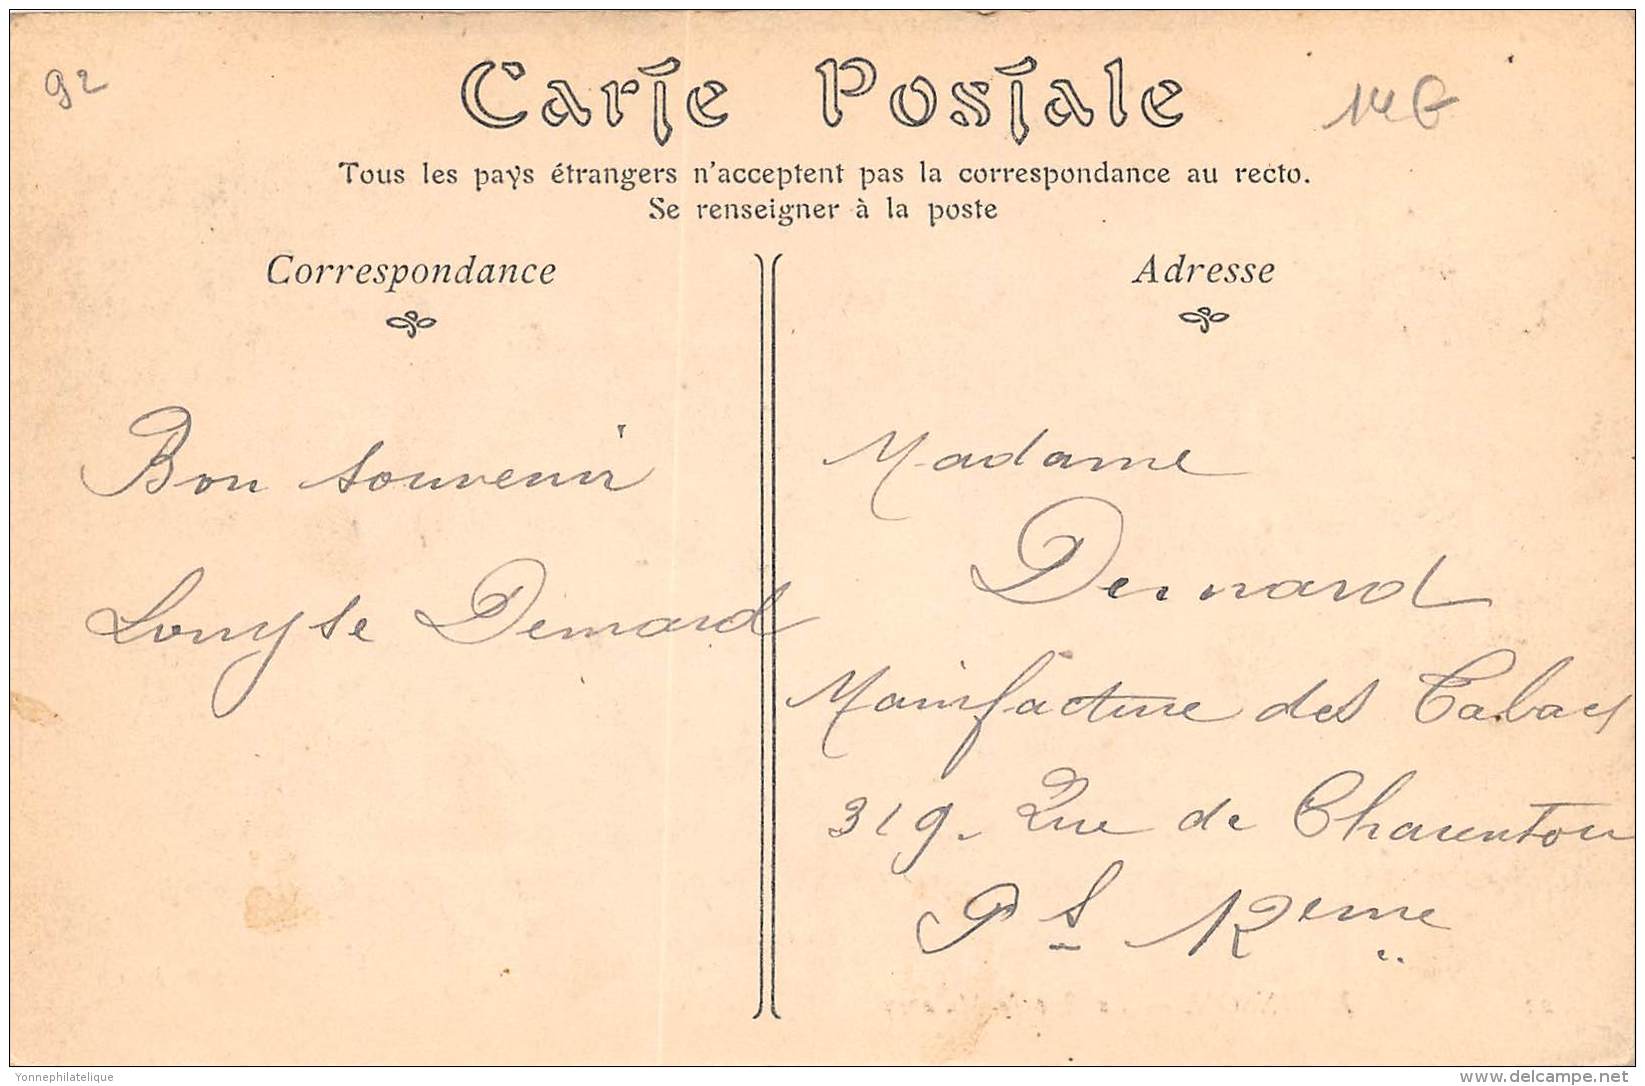 92
14€
Carte Postale
Tous les pays étrangers n'acceptent pas la correspondance au recto.
Se renseigner à la poste
Correspondance
Bon souvenir
Louyse Demard
Adresse
Madame
Demard
Manufacture des Tabacs
319. Rue de Charenton
Ps 12eme
Yonnephilatelique
delcampe.net